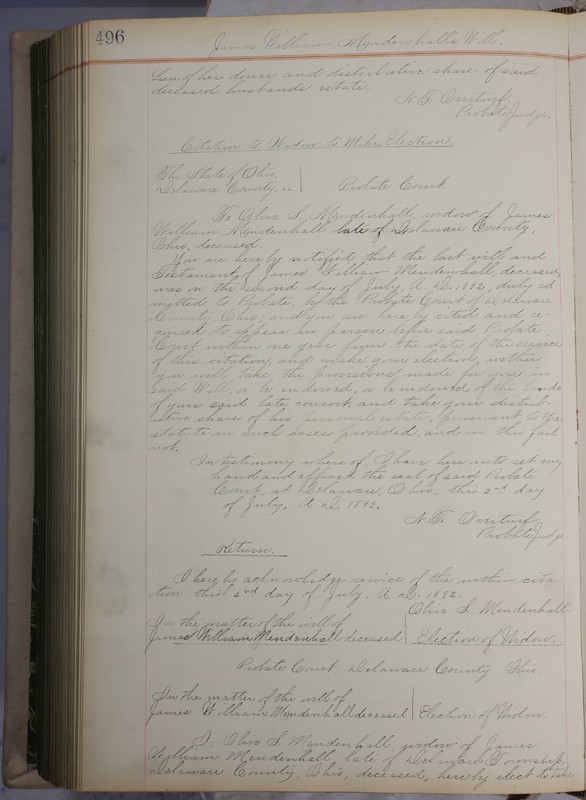 496
James William Myndenhall's Will.
lieu of her dower and distributive share of said
deceased husbands estate.
N. F. Overturf
Probate Judge.
Citation to Widow to Make Election.
The State of Ohio,
Delaware County, ss.
Probate Court
To Oliv S. Myndenhall, widow of James
William Myndenhall late of Delaware County,
Ohio, deceased.
You are hereby notified that the last will and
Testament of James William Mendenhall, deceased,
was on the second day of July, A. D. 1892, duly ad
mitted to Probate, by the Probate Court of Delaware
County, Ohio; and you are hereby cited and re-
quired to appear in person before said Probate
Court, within one year from the date of the service
of this citation, and make your election, wither
you will take the provisions made for you in
said Will, or be endowed, or be endowed of the lands
of your said late consort, and take your distrib-
utive share of his personal estate, pursuant to the
statute in such cases provided, and in this fail
not.
In testimony where of, I have here unto set my
hand and affixed the seal of said Probate
Court, at Delaware, Ohio, this 2nd day
of July, A. D. 1892.
N. F. Overturf,
Probate Judge
Return.
I hereby acknowledge service of the within cita
tion this 2nd day of July, A. D. 1892.
Oliv S. Mendenhall
In the matter of the will of
James William Mendenhall deceased
Election of Widow.
Probate Court, Delaware County, Ohio.
In the matter of the will of
James William Myndenhall deceased
Election of Widow
I, Oliv S. Mendenhall, widow of James
William Mendenhall, late of Delaware Township,
Delaware County, Ohio, deceased, hereby elect to take